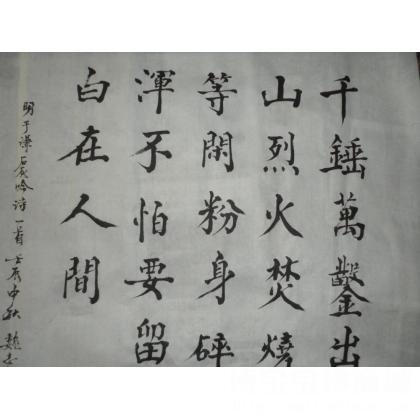 千錘萬鑿出
山烈火焚燒
等閑粉身碎
渾不怕要留
白在人間
明于謙石灰吟诗一首壬辰中秋趙